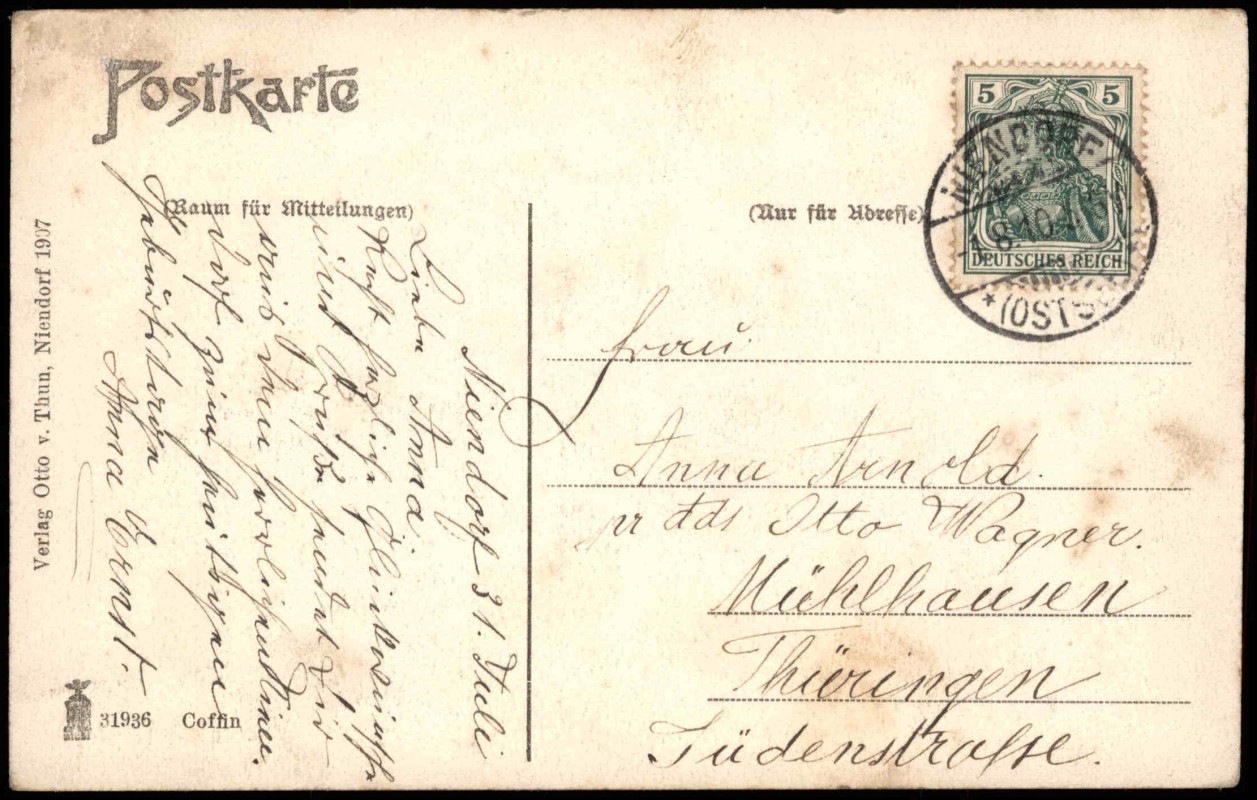 Postkarte
(Raum für Mitteilungen)
(Nur für Adresse)
5 5
DEUTSCHES REICH
NIENDORF
8.10
* (OSTS
Niendorf 31. Juli
Liebe Anna.
Recht herzliche Glückwünsche
und Grüße sendet Dir
sowie Deinen
Dorf zum heutigen
Geburtstage
Anna Ernst.
Frau
Anna Arnold.
Otto Wagner.
Mühlhausen
Thüringen
Jüdenstrasse.
Verlag Otto v. Thun, Niendorf 1907
31936 Coffin